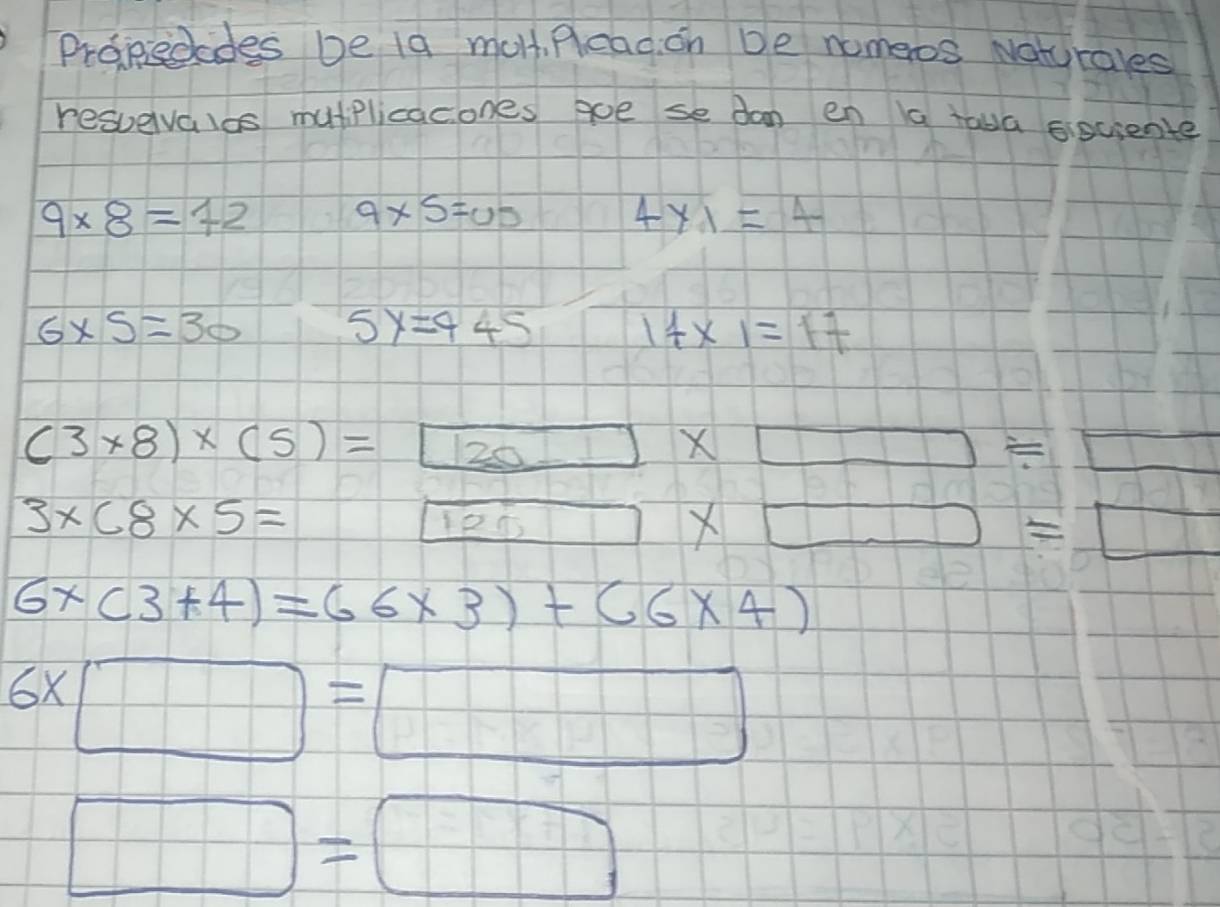 Propiedades De la multiplicación De numeros Naturales
resuelva las mutiplicacones que se dan en la tabla siguiente
9 × 8 = 72 9 × 5 = 4 × 1 = 4
6 × 5 = 30 5 × = 9 45 17 × 1 = 17
(3 × 8) × (5) = 120 × =
3 × (8 × 5 = 120 × =
6 × (3 + 4) = (6 × 3) + (6 × 4)
6 × =
=